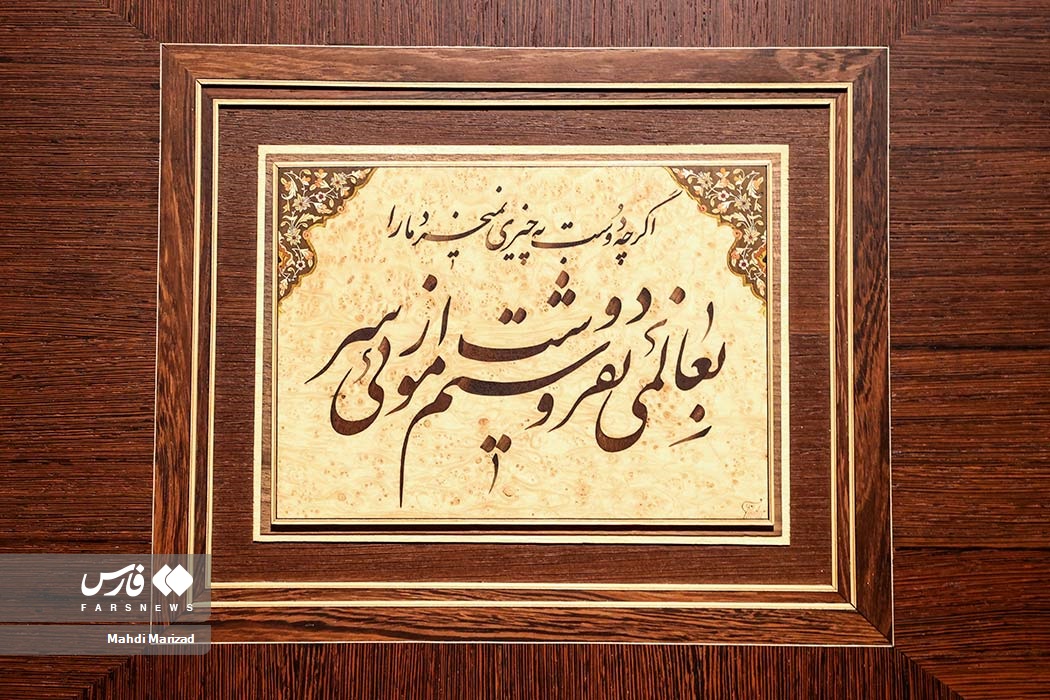 اگرچه دوست به چیزی نمیخرد ما را
بعالمی نفروشیم موئی از سر دوست
فارس
FARSNEWS
Mahdi Marizad